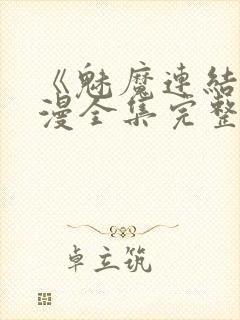 《魅魔連結
漫全集完整
卓立筑